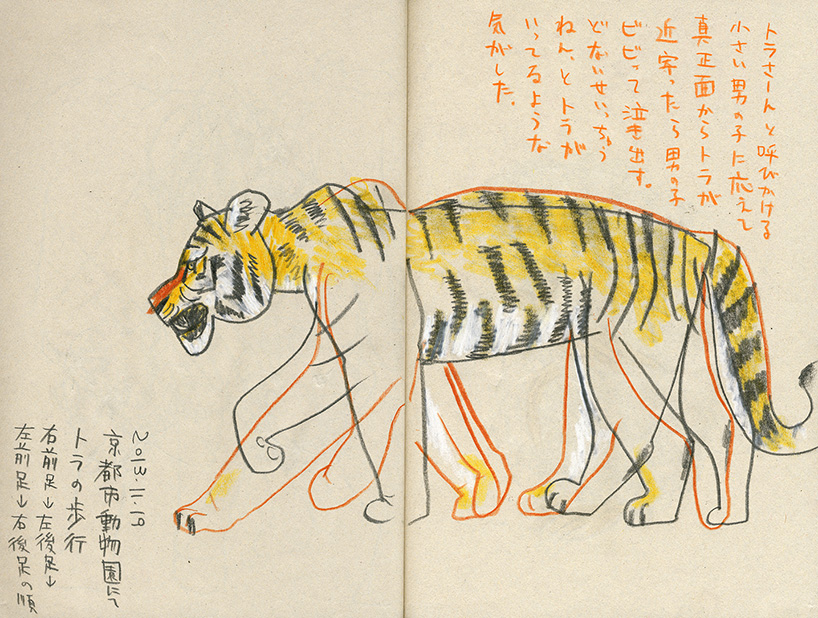 トラさーんと呼びかける
小さい男の子に応えて
真正面からトラが
近寄ったら男の子
ビビって泣き出す。
どないせいっちゅう
ねん、とトラが
いってるような
気がした。
2013.11.19
京都市動物園にて
トラの歩行
右前足→左後足→
左前足→右後足の順